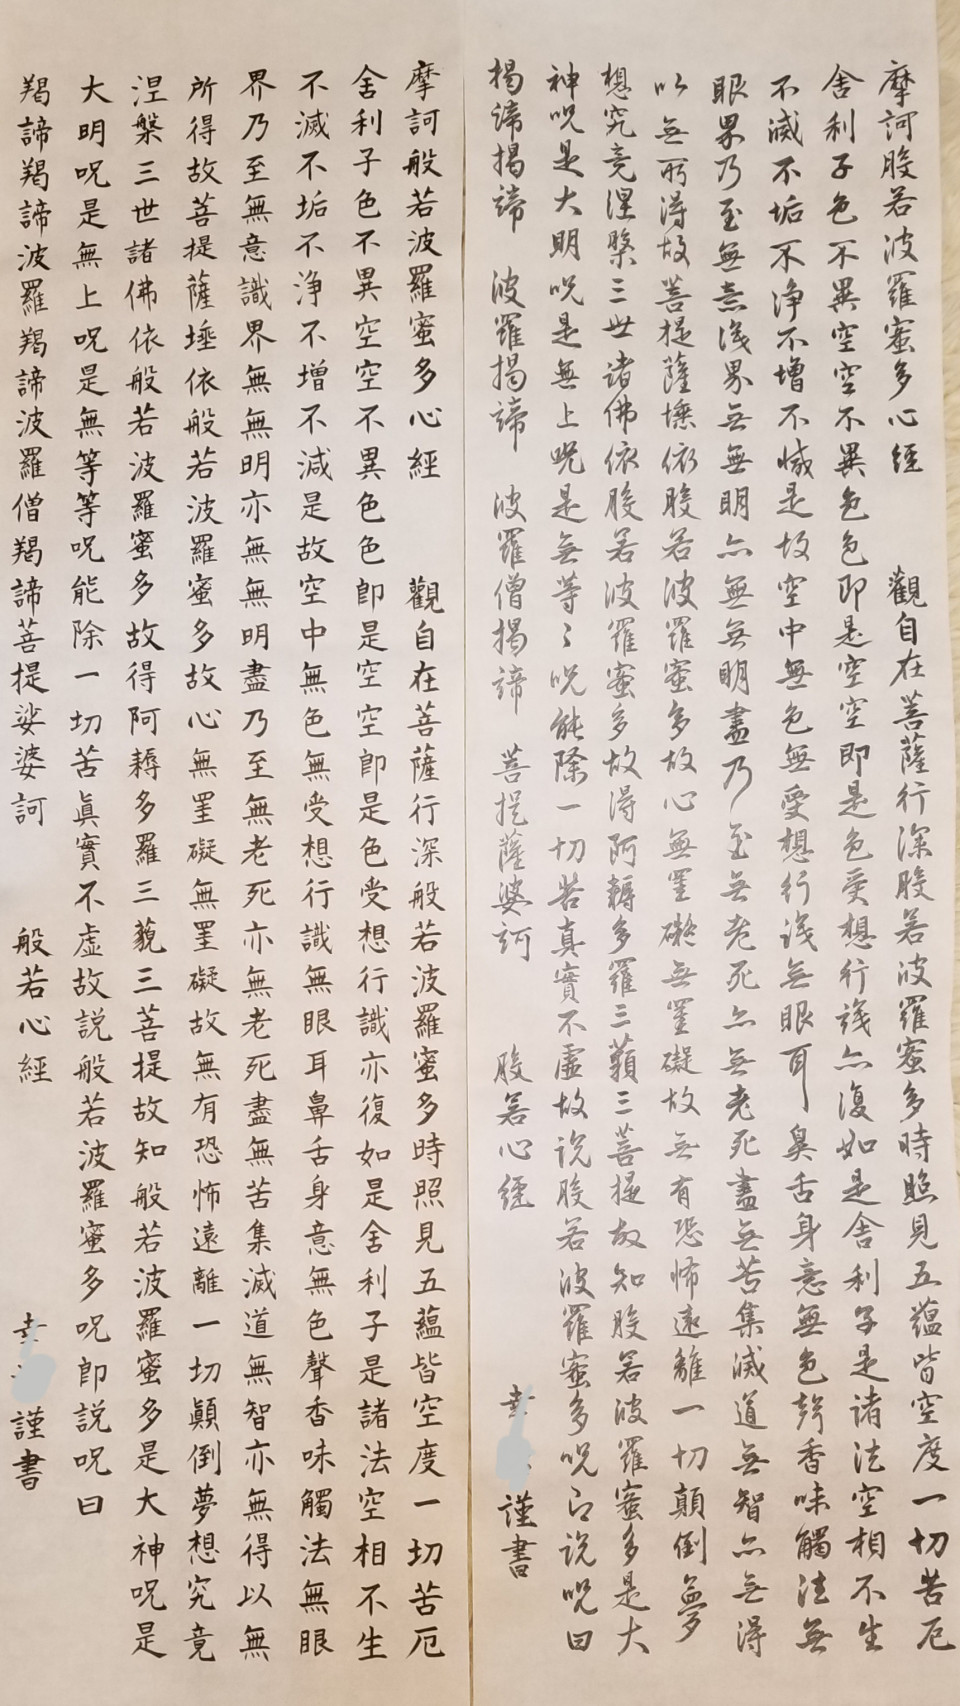 摩訶般若波羅蜜多心經 觀自在菩薩行深般若波羅蜜多時照見五蘊皆空度一切苦厄
舍利子色不異空空不異色色即是空空即是色受想行識亦復如是舍利子是諸法空相不生
不滅不垢不浄不增不減是故空中無色無受想行識無眼耳鼻舌身意無色聲香味觸法無
眼界乃至無意識界無無明亦無無明盡乃至無老死亦無老死盡無苦集滅道無智亦無得
以無所得故菩提薩埵依般若波羅蜜多故心無罣礙無罣礙故無有恐怖遠離一切顛倒夢
想究竟涅槃三世諸佛依般若波羅蜜多故得阿耨多羅三藐三菩提故知般若波羅蜜多是大
神呪是大明呪是無上呪是無等々呪能除一切苦真實不虛故説般若波羅蜜多呪即説呪曰
揭諦揭諦 波羅揭諦 波羅僧揭諦 菩提薩婆訶 般若心經 幸 謹書
摩訶般若波羅蜜多心經 觀自在菩薩行深般若波羅蜜多時照見五蘊皆空度一切苦厄
舍利子色不異空空不異色色即是空空即是色受想行識亦復如是舍利子是諸法空相不生
不滅不垢不浄不增不減是故空中無色無受想行識無眼耳鼻舌身意無色聲香味觸法無眼
界乃至無意識界無無明亦無無明盡乃至無老死亦無老死盡無苦集滅道無智亦無得以無
所得故菩提薩埵依般若波羅蜜多故心無罣礙無罣礙故無有恐怖遠離一切顛倒夢想究竟
涅槃三世諸佛依般若波羅蜜多故得阿耨多羅三藐三菩提故知般若波羅蜜多是大神呪是
大明呪是無上呪是無等等呪能除一切苦眞實不虛故説般若波羅蜜多呪即説呪曰
羯諦羯諦波羅羯諦波羅僧羯諦菩提娑婆訶 般若心経 幸 謹書